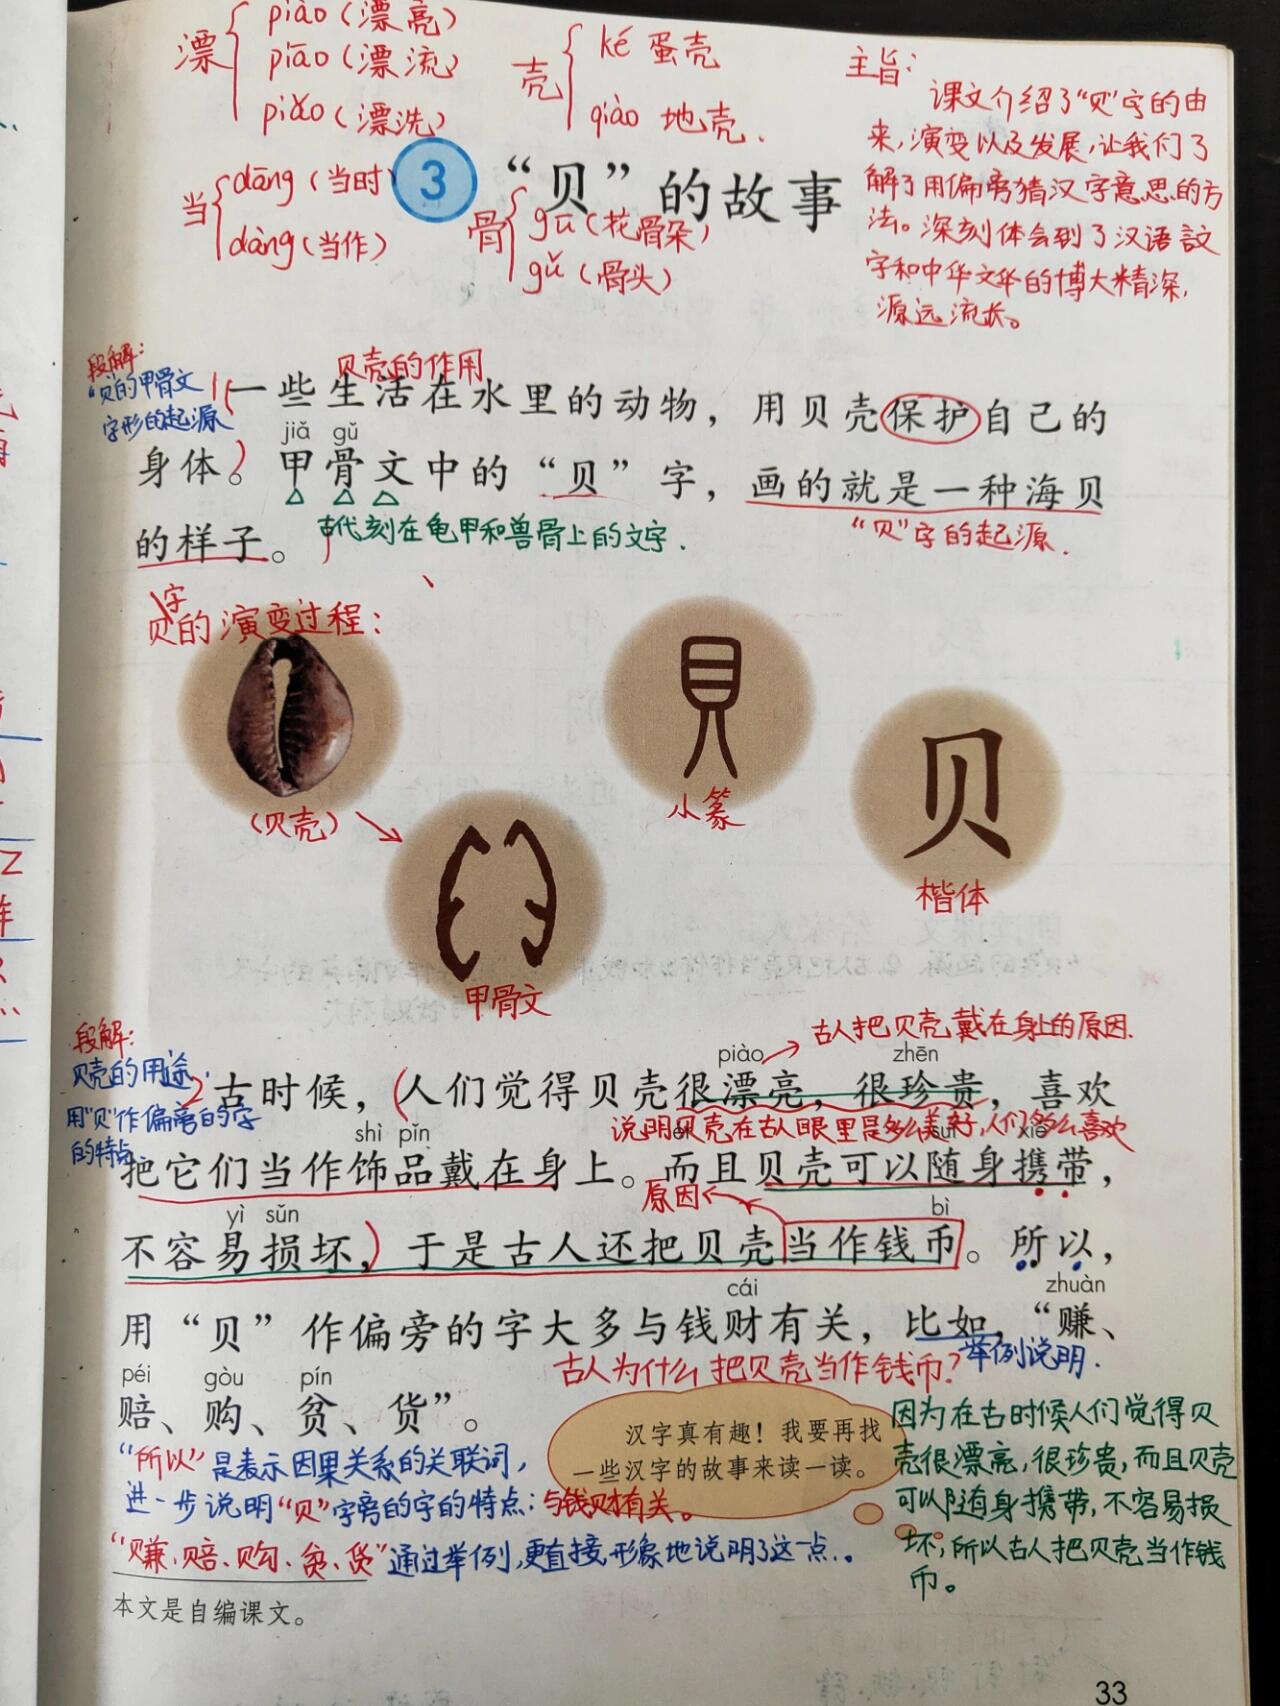 漂 piào（漂亮）
piāo（漂流）
piǎo（漂洗）
壳 ké 蛋壳
qiào 地壳.
主旨：
课文介绍了“贝”字的由
来，演变以及发展，让我们了
解了用偏旁猜汉字意思的方
法。深刻体会到了汉语言文
字和中华文华的博大精深，
源远流长。
当 dāng（当时）
dàng（当作）
3 “贝”的故事
骨 gū（花骨朵）
gǔ（骨头）
段解：
“贝”的甲骨文
字形的起源
贝壳的作用
一些生活在水里的动物，用贝壳保护自己的
jiǎ gǔ
身体。甲骨文中的“贝”字，画的就是一种海贝
古代刻在龟甲和兽骨上的文字.
“贝”字的起源.
的样子。
贝字的演变过程：
（贝壳）
小篆
楷体
甲骨文
段解：
贝壳的用途，
用“贝”作偏旁的字
的特点
古人把贝壳戴在身上的原因.
piào zhēn
2 古时候，（人们觉得贝壳很漂亮，很珍贵，喜欢
说明贝壳在古人眼里是多么美好，人们多么喜欢
shì pǐn suí xié
把它们当作饰品戴在身上。而且贝壳可以随身携带，
原因
yì sǔn bì
不容易损坏，）于是古人还把贝壳当作钱币。所以，
cái zhuàn
用“贝”作偏旁的字大多与钱财有关，比如，“赚、
古人为什么把贝壳当作钱币？
举例说明.
péi gòu pín
赔、购、贫、货”。
汉字真有趣！我要再找
一些汉字的故事来读一读。
因为在古时候人们觉得贝
壳很漂亮，很珍贵，而且贝壳
可以随身携带，不容易损
坏，所以古人把贝壳当作钱
币。
“所以”是表示因果关系的关联词，
进一步说明“贝”字旁的字的特点：与钱财有关。
“赚、赔、购、贫、货”通过举例，更直接，形象地说明了这一点。
本文是自编课文。
33